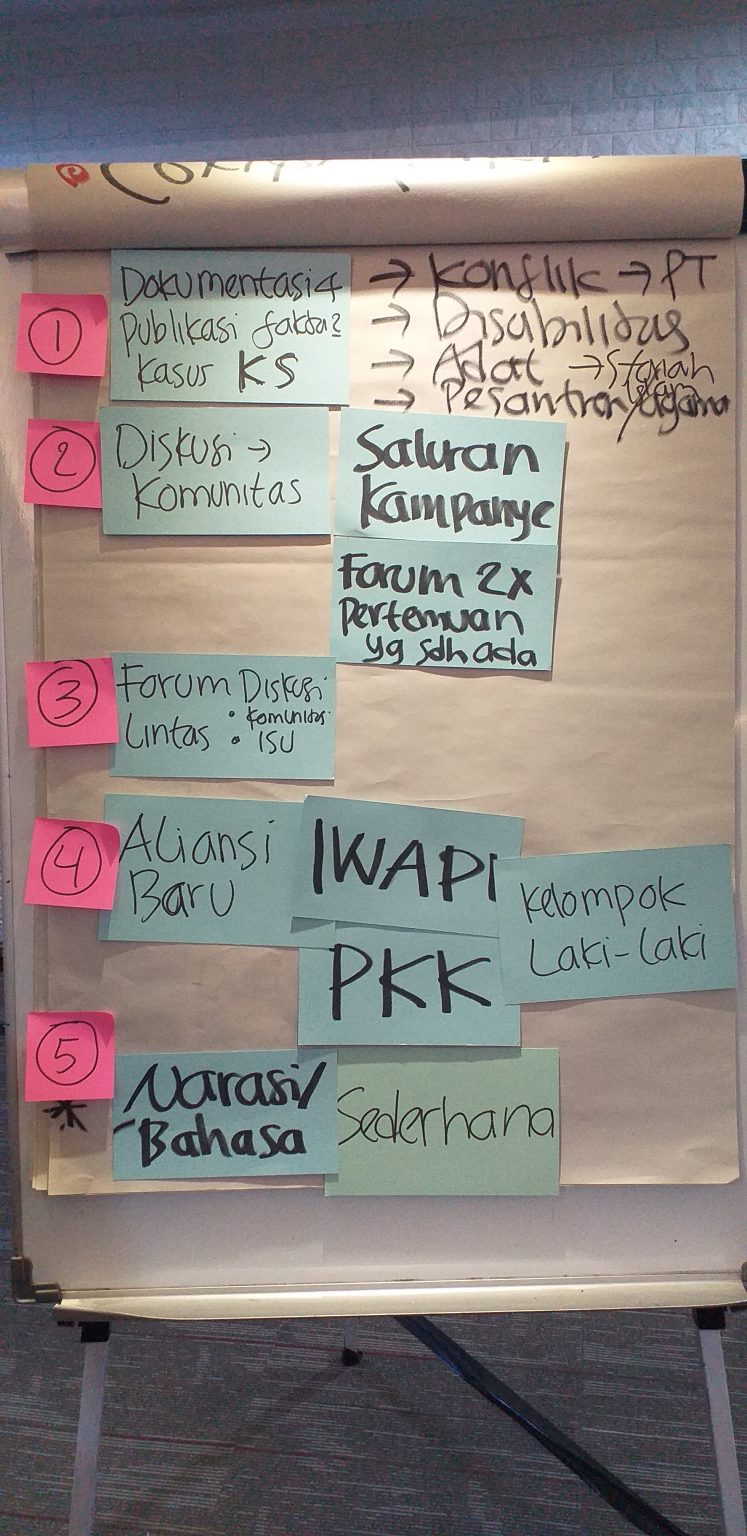 1
Dokumentasi 4
Publikasi fakta2
Kasus KS
→ Konflik → PT
→ Disabilitas
→ Adat → Syariah
→ Pesantren/agama
2
Diskusi →
Komunitas
Saluran
Kampanye
Forum 2x
Pertemuan
yg sdh ada
3
Forum Diskusi
Lintas • Komunitas
• ISU
4
Aliansi
Baru
IWAPI
PKK
Kelompok
Laki-laki
5
*
Narasi/
Bahasa
Sederhana